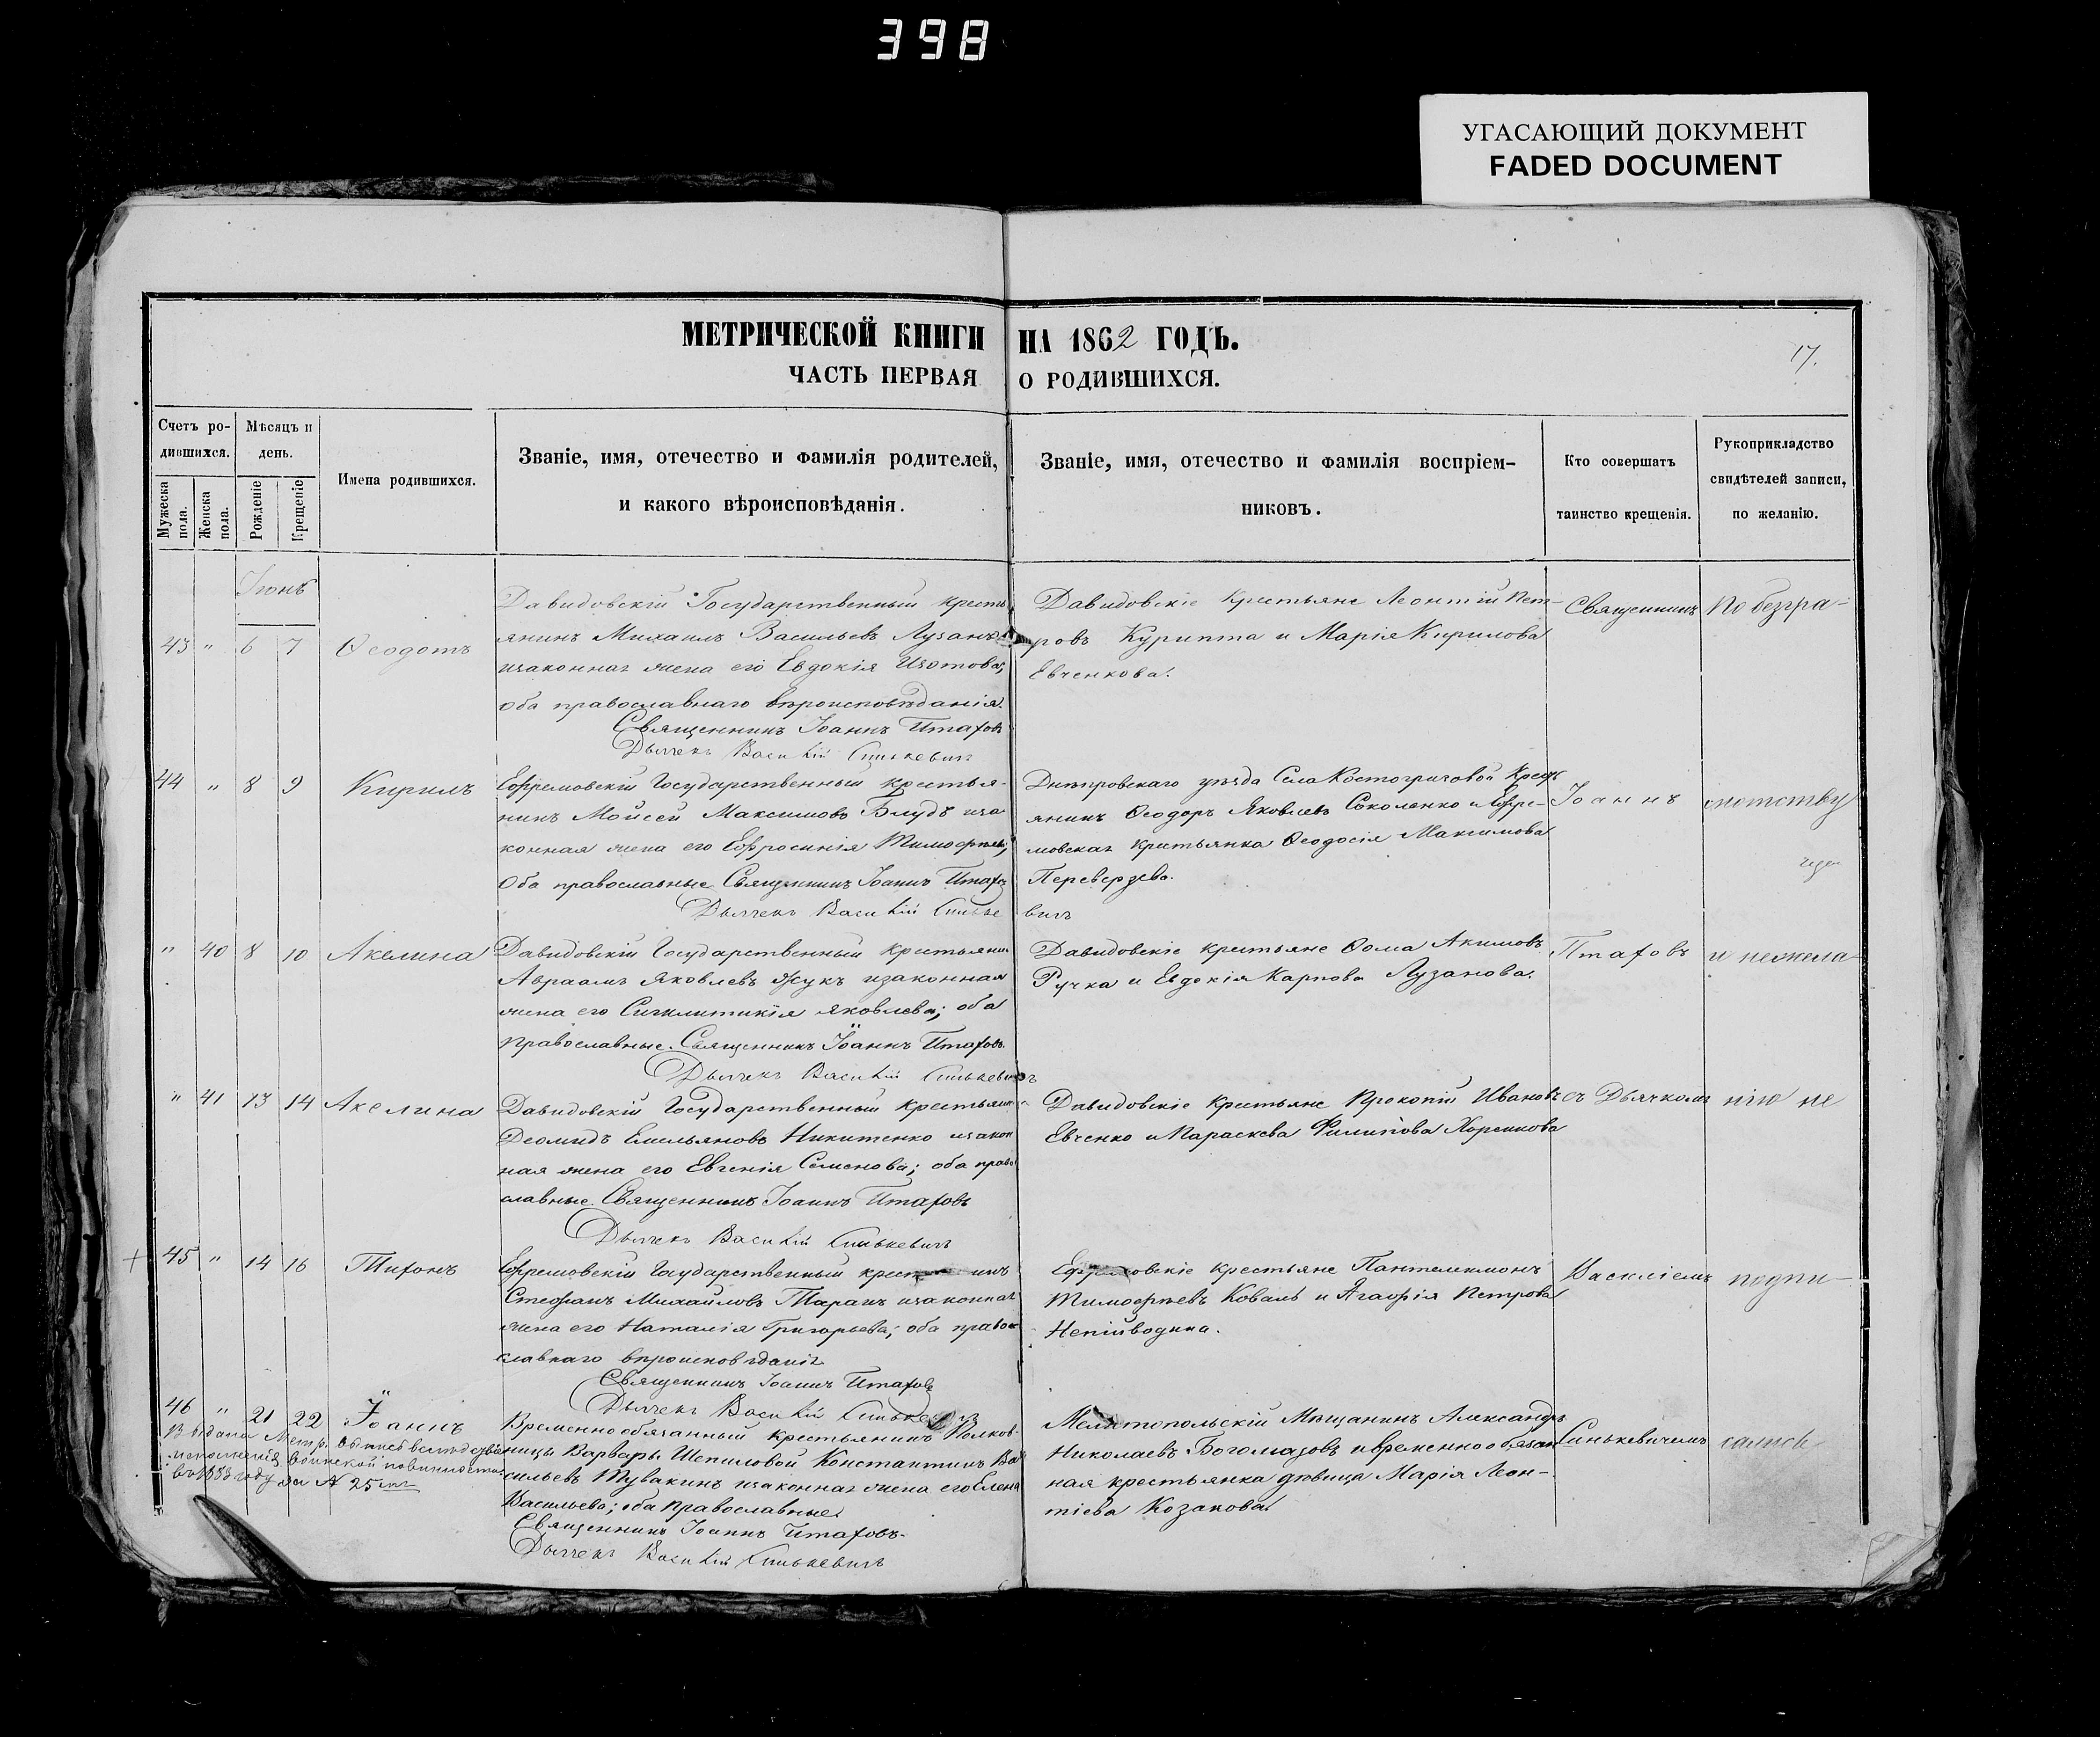 398
УГАСАЮЩИЙ ДОКУМЕНТ
FADED DOCUMENT
МЕТРИЧЕСКОЙ КНИГИ НА 1862 ГОДЪ.
17.
ЧАСТЬ ПЕРВАЯ О РОДИВШИХСЯ.
Счетъ ро-
дившихся.
Мужеска пола.
Женска пола.
Мѣсяцъ и
день.
Рожденіе
Крещеніе
Имена родившихся.
Званіе, имя, отечество и фамилія родителей,
и какого вѣроисповѣданія.
Званіе, имя, отечество и фамилія воспріем-
никовъ.
Кто совершатъ
таинство крещенія.
Рукоприкладство
свидѣтелей записи,
по желанію.
Іюнь
43 " 6 7 Ѳеодотъ
Давидовскій Государственный кресть
янинъ Михаилъ Васильевъ Лузанъ
изаконная жена его Евдокія Изотова,
оба православнаго вѣроисповѣданія.
Священникъ Іоаннъ Птаховъ
Дьячекъ Василій Синькевичъ
Давидовскіе крестьяне Леонтій Пет-
ровъ Курипта и Марія Кирилова
Евченкова.
Священникъ
по безгра-
44 " 8 9 Кирилъ
Ефремовскій Государственный крестья-
нинъ Мойсей Максимовъ Блудъ иза
конная жена его Ефросинія Тимофѣева;
Оба православные. Священникъ Іоаннъ Птахов
Дьячекъ Василій Синьке вичъ
Днѣпровскаго уѣзда Села Костогризовой Крест
янинъ Ѳеодоръ Яковлевъ Соколенко и Ефре-
мовская кристьянка Ѳеодосія Максимова
Переверзева.
Іоаннъ
мотству
" 40 8 10 Акелина
Давидовскій Государственный Крестьянин
Авраамъ Яковлевъ Жукъ изаконная
жена его Сигклитикія Яковлева; оба
православные. Священникъ Іоаннъ Птаховъ.
Дьячекъ Василій Синькевичъ
Давидовскіе крестьяне Ѳома Акимовъ
Ручка и Евдокія Карпова Лузанова.
Птаховъ
и нежела-
" 41 13 14 Акелина
Давидовскій Государственный крестьянин
Деомидъ Емельяновъ Никитенко изакон
ная жена его Евгенія Семенова; оба право
славные. Священникъ Іоаннъ Птаховъ
Дьячекъ Василій Синькевичъ
Давидовскіе Крестьяне Прокопій Ивановъ
Евченко и Параскева Филипова Хоренкова
съ Дьячкомъ
нію не
+ 45 " 14 16 Тихонъ
Ефремовскій Государственный крест
Стефанъ Михайловъ Таранъ изаконная
жена его Наталія Григорьева; оба право
славнаго вѣроисповѣданія
Священникъ Іоаннъ Птаховъ
Дьячекъ Василій Синькевичъ
Ефремовскіе крестьяне Пантелемонъ
Тимофѣевъ Коваль и Агафія Петрова
Непійводина.
Василіемъ
подпи-
46 " 21 22 Іоаннъ
Выдана Метр. выпись вслѣдствіе
исполненія воинской повинности
въ 1883 году за № 25
Временнообязанный крестьянинъ Полков-
ницы Варвары Шепиловой Константинъ Ва
сильевъ Тувакинъ изаконная жена его Елена
Васильева; оба православные.
Священникъ Іоаннъ Птаховъ.
Дьячекъ Василій Синькевичъ
Мелитопольскій Мѣщанинъ Александръ
Николаевъ Богомазовъ и временнообязан
ная крестьянка дѣвица Марія Леон-
тіева Козакова.
Синькевичемъ
сались